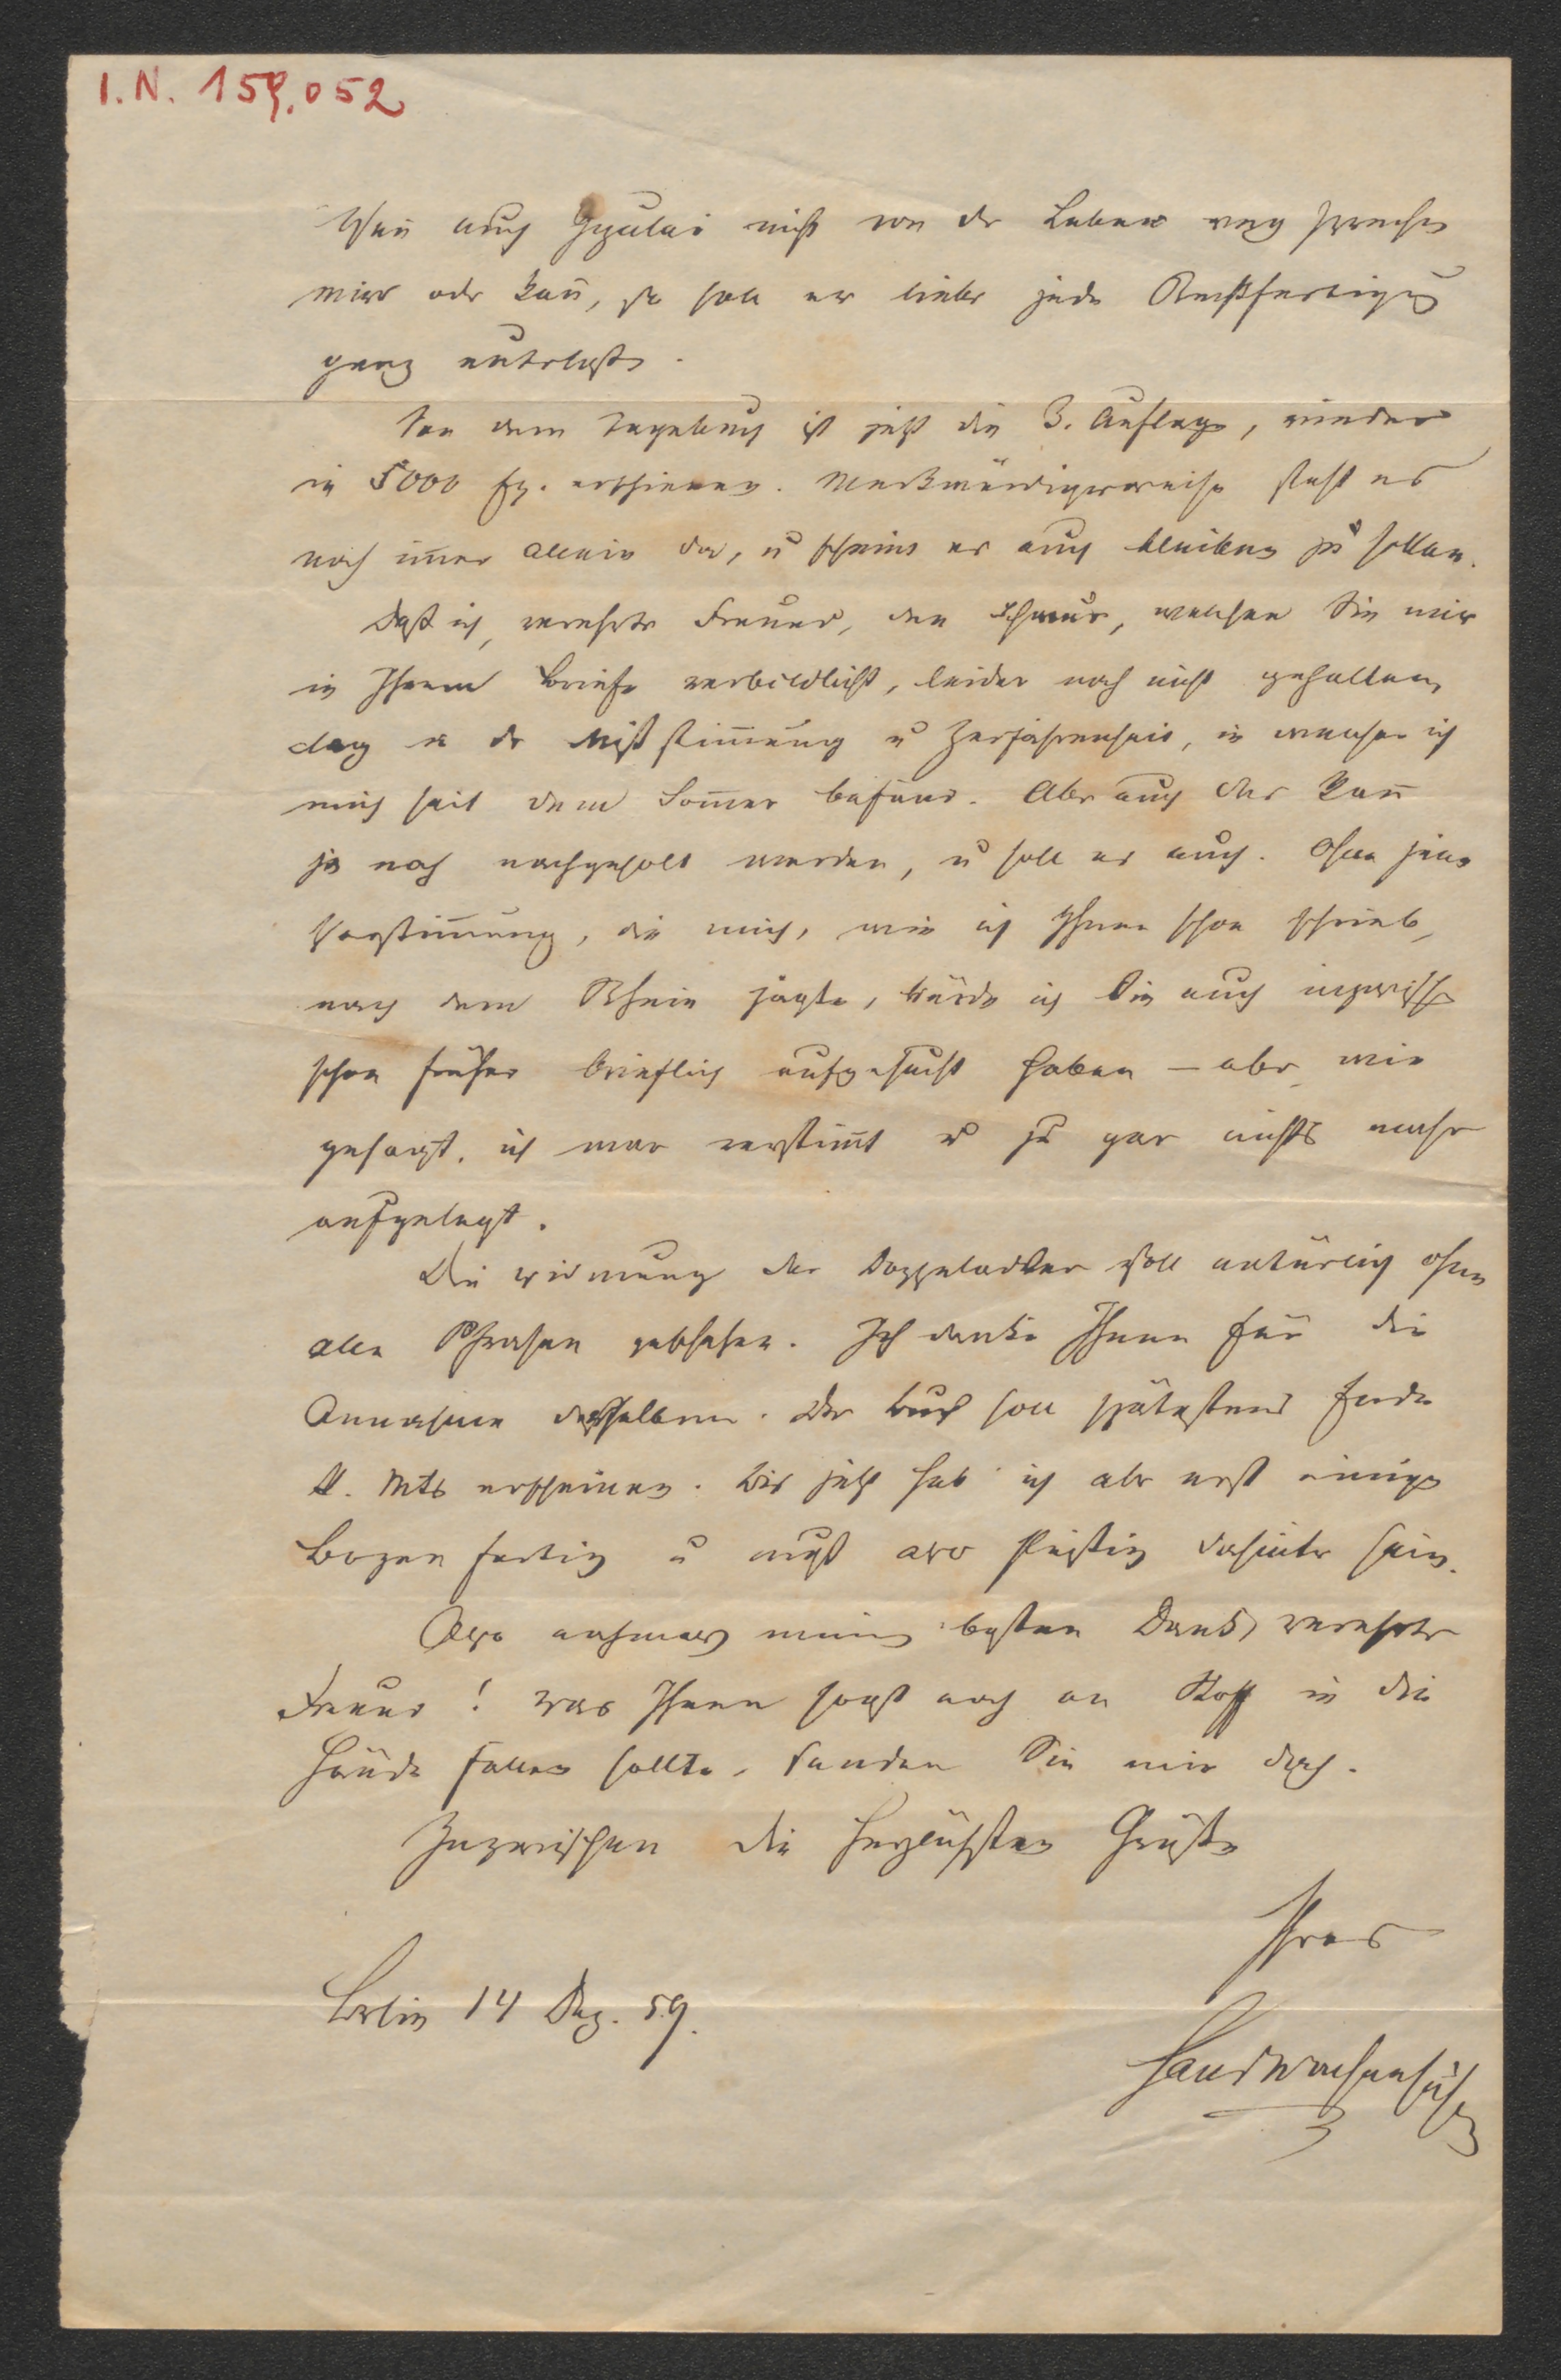 I. N. 159.052
Wenn auch Gyulai nicht von der Leber weg sprechen
will oder kann, so soll er lieber jede Rechtfertigung
ganz unterlassen.
Von dem Tagebuch ist jetzt die 3. Auflage, wieder
in 5000 Ex. erschienen. Merkwürdigerweise steht es
noch im̄er allein da, u scheint es auch bleiben zu sollen.
Daß ich, verehrter Freund, den Schwur, welchen Sie mir
in Ihrem Briefe verbildlicht, leider noch nicht gehalten,
lag in der Mißstim̄ung u Zerfahrenheit, in welcher ich
mich seit dem Som̄er befand. Aber auch das kan̄
ja noch nachgeholt werden, u soll es auch. Ohne jene
Verstim̄ung, die mich, wie ich Ihnen schon schrieb,
nach dem Rhein jagte, würde ich Sie auch inzwischen
schon früher brieflich aufgesucht haben — aber, wie
gesagt, ich war verstim̄t u zu gar nichts mehr
aufgelegt.
Die Widmung des Doppeladler soll natürlich ohne
alle Phrasen geschehen. Ich danke Ihnen für die
Annahme derselben. Das Buch soll spätestens Ende
d. Mts erscheinen. Bis jetzt hab' ich aber erst einige
Bogen fertig u muß also fleißig dahinter sein.
Also nochmals meinen besten Dank, verehrter
Freund! Was Ihnen sonst noch an Stoff in die
Hände fallen sollte, senden Sie mir doch.
Inzwischen die herzlichsten Grüße
Ihres
Berlin 14 Dez. 59.
Hans Wachenhusen